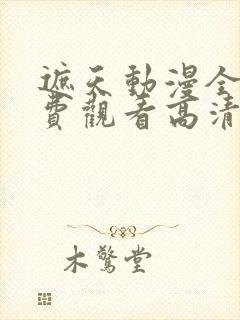 遮天動漫全
費觀看高清
木驚堂